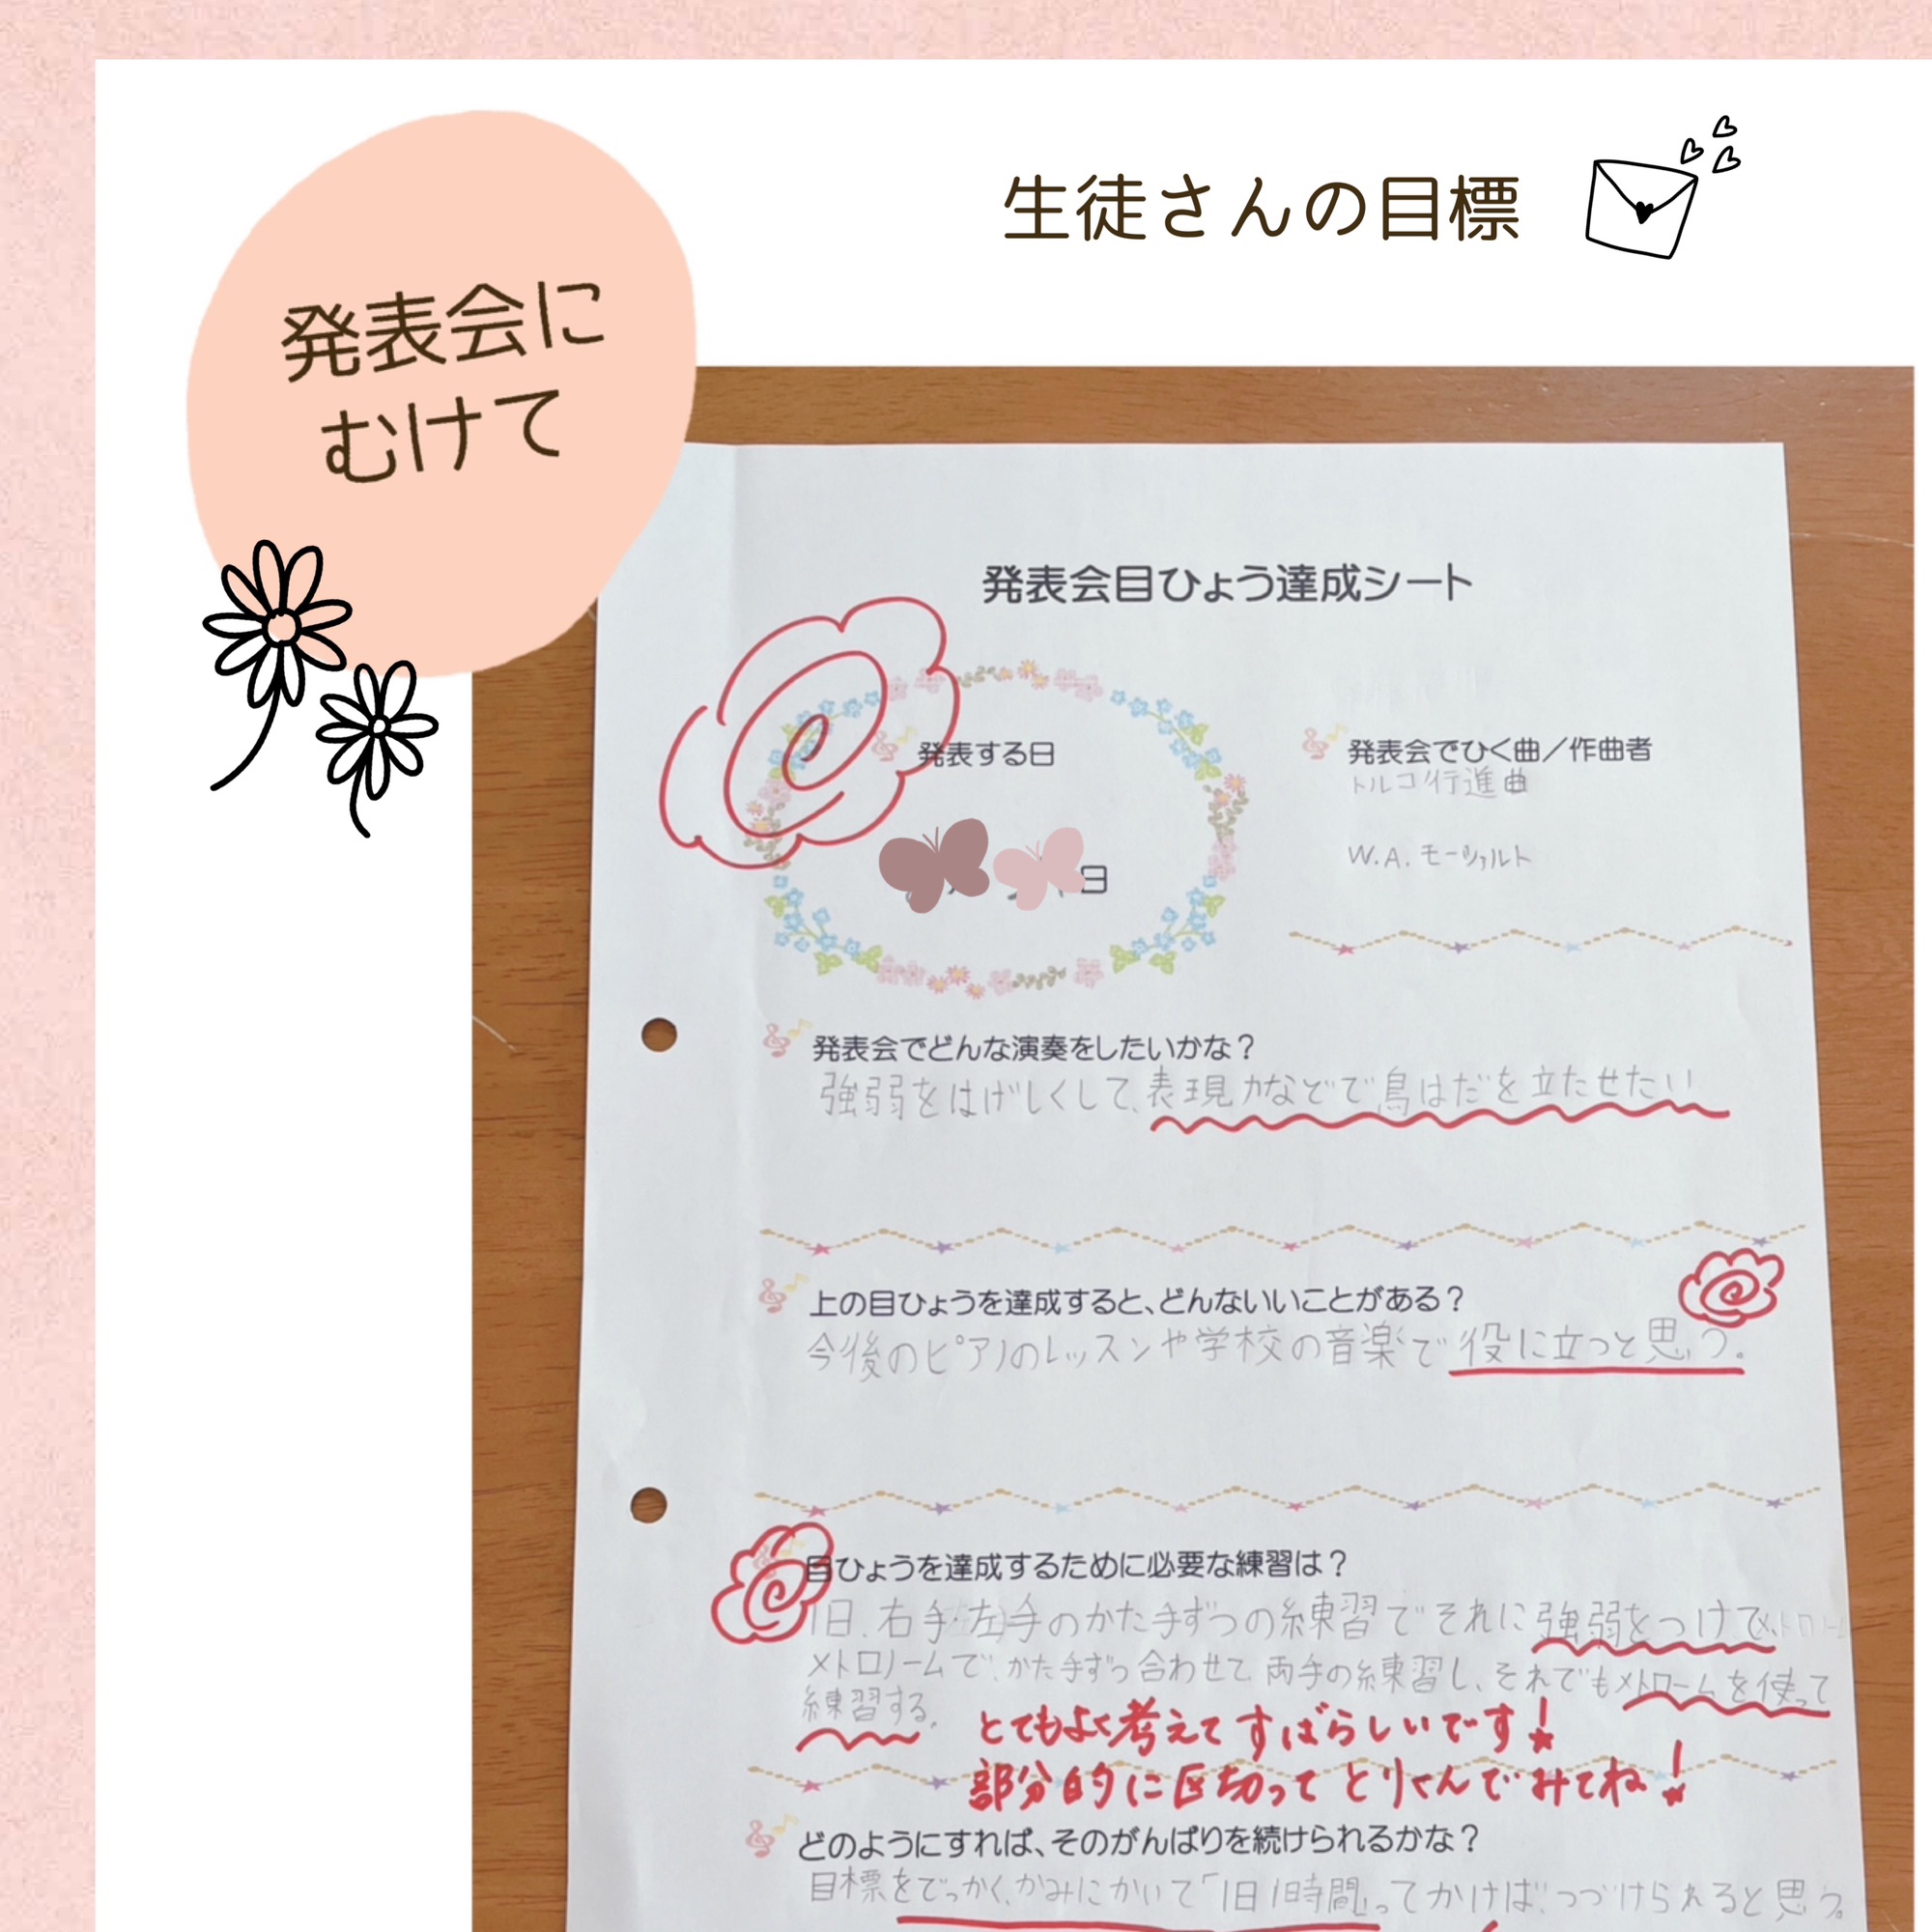 生徒さんの目標
発表会に
むけて
発表会目ひょう達成シート
発表する日
日
発表会でひく曲／作曲者
トルコ行進曲
W.A.モーツァルト
発表会でどんな演奏をしたいかな？
強弱をはげしくして、表現力などで鳥はだを立たせたい
上の目ひょうを達成すると、どんないいことがある？
今後のピアノのレッスンや学校の音楽で役に立つと思う。
目ひょうを達成するために必要な練習は？
1日、右手・左手のかた手ずつの練習でそれに強弱をつけて
メトロノームで、かた手ずつ合わせて両手の練習し、それでもメトロームを使って
練習する。
とてもよく考えてすばらしいです！
部分的に区切ってとりくんでみてね！
どのようにすれば、そのがんばりを続けられるかな？
目標をでっかく、かみにかいて「1日1時間」ってかけば、つづけられると思う。